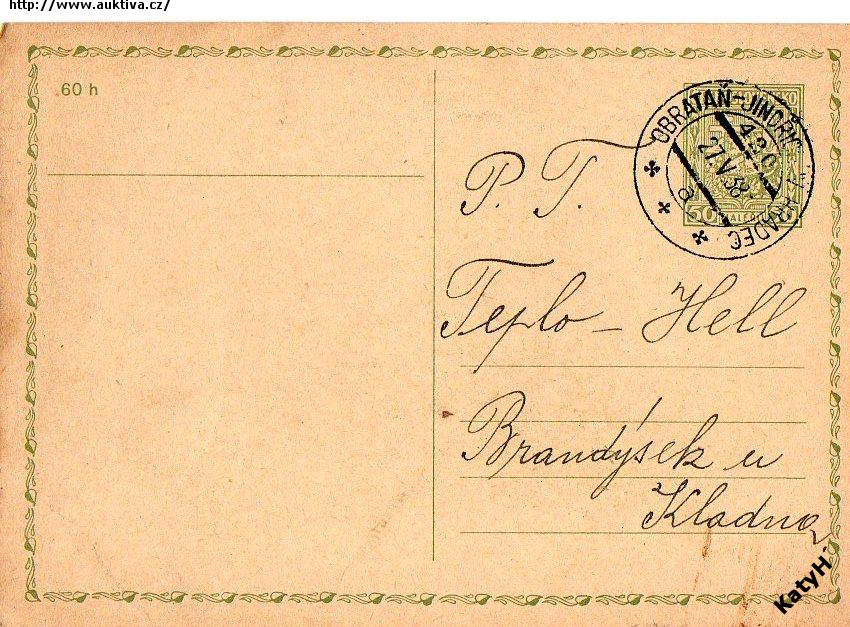 http://www.auktiva.cz/
60 h
OBRATAŇ-JINDŘICHŮV HRADEC
420
27.V 38
a
50
P. T.
Teplo - Hell
Brandýsek u
Kladna
KatyH